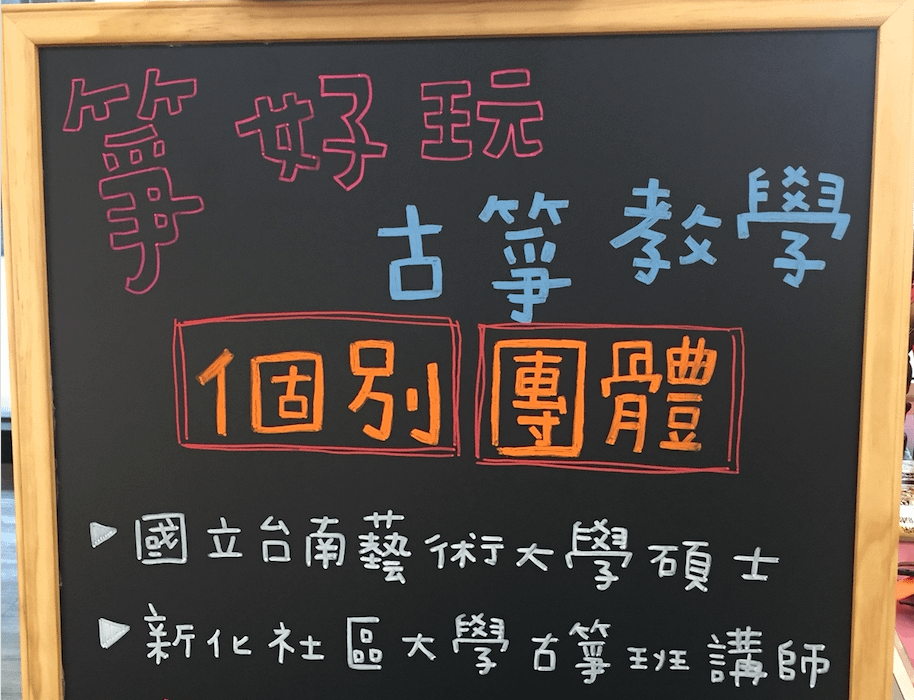 箏好玩
古箏教學
個別 團體
▶國立台南藝術大學碩士
▶新化社區大學古箏班講師